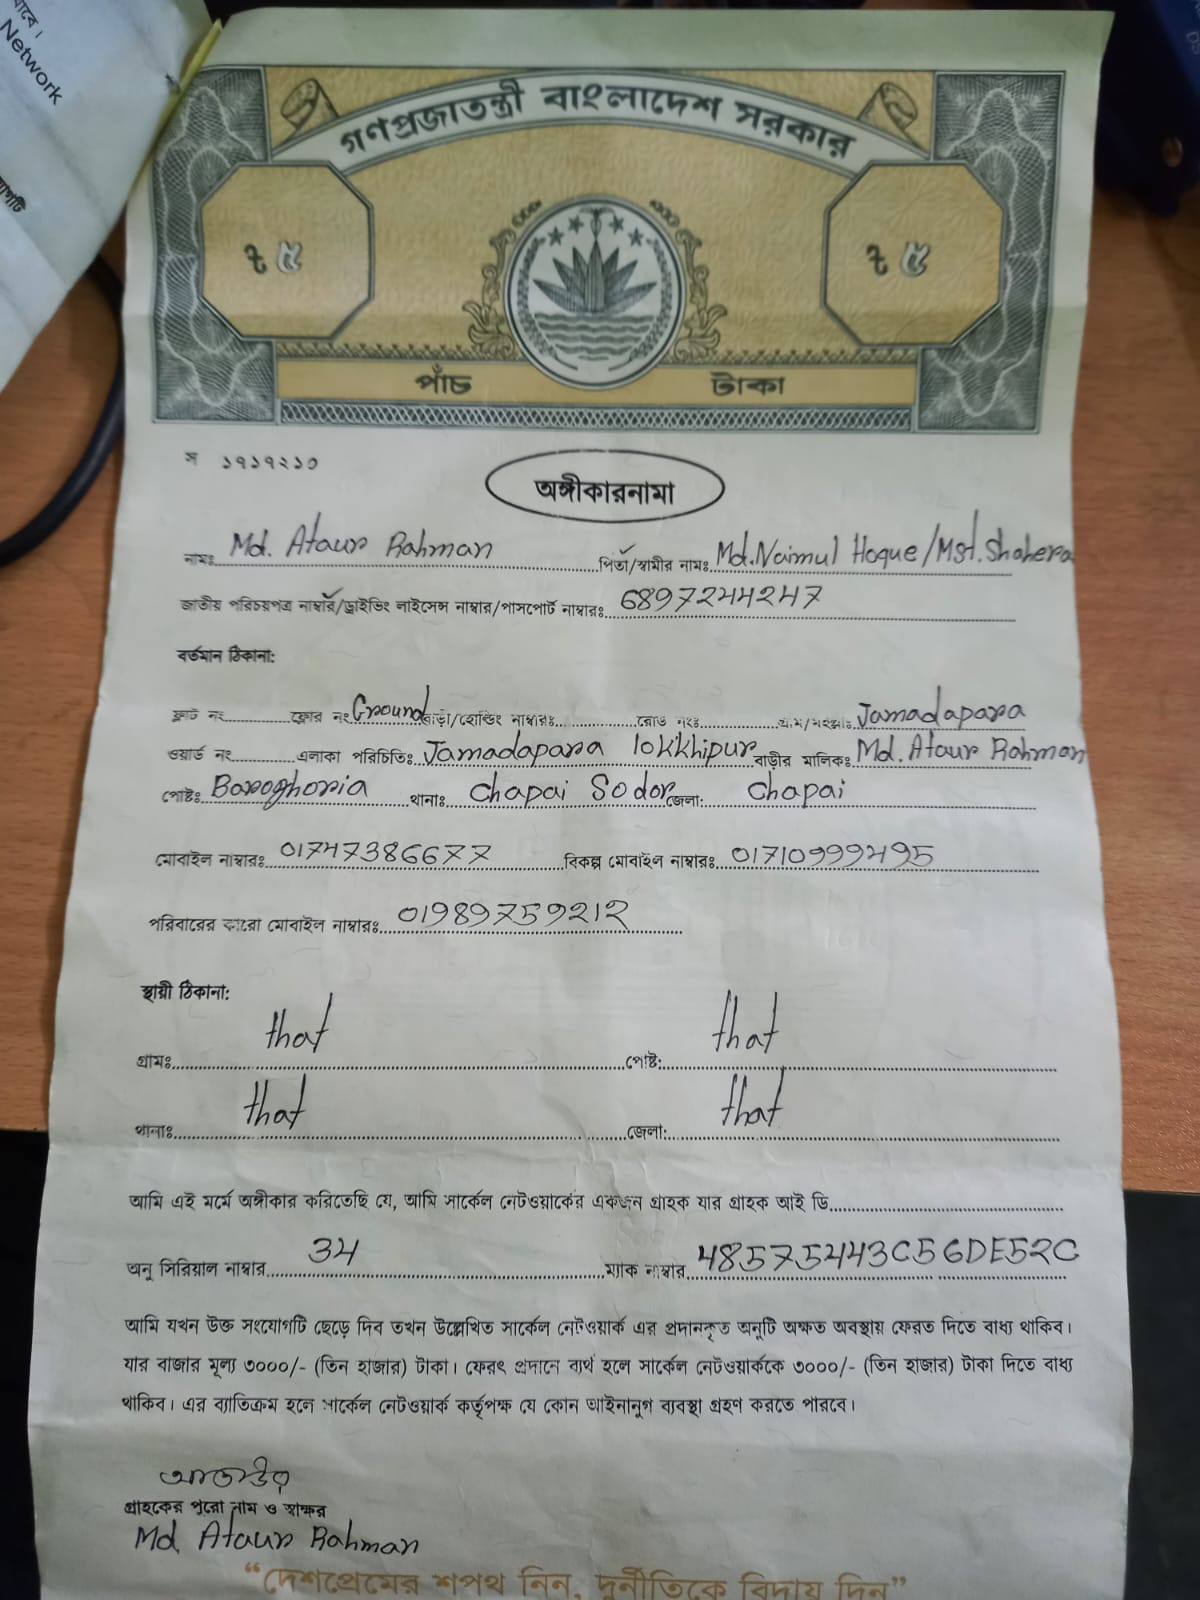 যাবে।
Network
গণপ্রজাতন্ত্রী বাংলাদেশ সরকার
৳ ৫ ৳ ৫
পাঁচ টাকা
স ১৭১৭২১০
অঙ্গীকারনামা
নামঃ Md. Ataur Rahman পিতা/স্বামীর নামঃ Md. Naimul Hoque/Mst. Shahera
জাতীয় পরিচয়পত্র নাম্বার/ড্রাইভিং লাইসেন্স নাম্বার/পাসপোর্ট নাম্বারঃ 6897244247
বর্তমান ঠিকানা:
ফ্লাট নং ফ্লোর নং Ground বাড়ী/হোল্ডিং নাম্বারঃ রোড নংঃ গ্রাম/মহল্লাঃ Jamadapara
ওয়ার্ড নং এলাকা পরিচিতিঃ Jamadapara lokkhipur বাড়ীর মালিকঃ Md. Ataur Rahman
পোষ্টঃ Baroghoria থানাঃ Chapai Sodor জেলা: Chapai
মোবাইল নাম্বারঃ 01747386677 বিকল্প মোবাইল নাম্বারঃ 01710999495
পরিবারের কারো মোবাইল নাম্বারঃ 01989759212
স্থায়ী ঠিকানা:
গ্রামঃ that পোষ্ট: that
থানাঃ that জেলা: that
আমি এই মর্মে অঙ্গীকার করিতেছি যে, আমি সার্কেল নেটওয়ার্কের একজন গ্রাহক যার গ্রাহক আই ডি
অনু সিরিয়াল নাম্বার 34 ম্যাক নাম্বার 48575443C56DE52C
আমি যখন উক্ত সংযোগটি ছেড়ে দিব তখন উল্লেখিত সার্কেল নেটওয়ার্ক এর প্রদানকৃত অনুটি অক্ষত অবস্থায় ফেরত দিতে বাধ্য থাকিব।
যার বাজার মূল্য ৩০০০/- (তিন হাজার) টাকা। ফেরৎ প্রদানে ব্যর্থ হলে সার্কেল নেটওয়ার্ককে ৩০০০/- (তিন হাজার) টাকা দিতে বাধ্য
থাকিব। এর ব্যতিক্রম হলে সার্কেল নেটওয়ার্ক কর্তৃপক্ষ যে কোন আইনানুগ ব্যবস্থা গ্রহণ করতে পারবে।
আতাউর
গ্রাহকের পুরো নাম ও স্বাক্ষর
Md. Ataur Rahman
“দেশপ্রেমের শপথ নিন, দুর্নীতিকে বিদায় দিন”